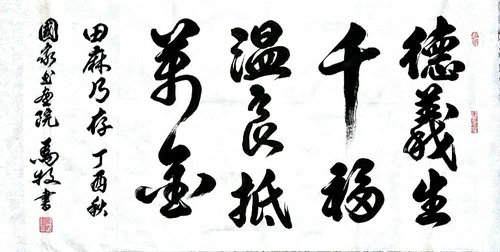 德義生
千福
溫良抵
萬金
田麻乃存 丁酉秋
國家书画院 馬牧書